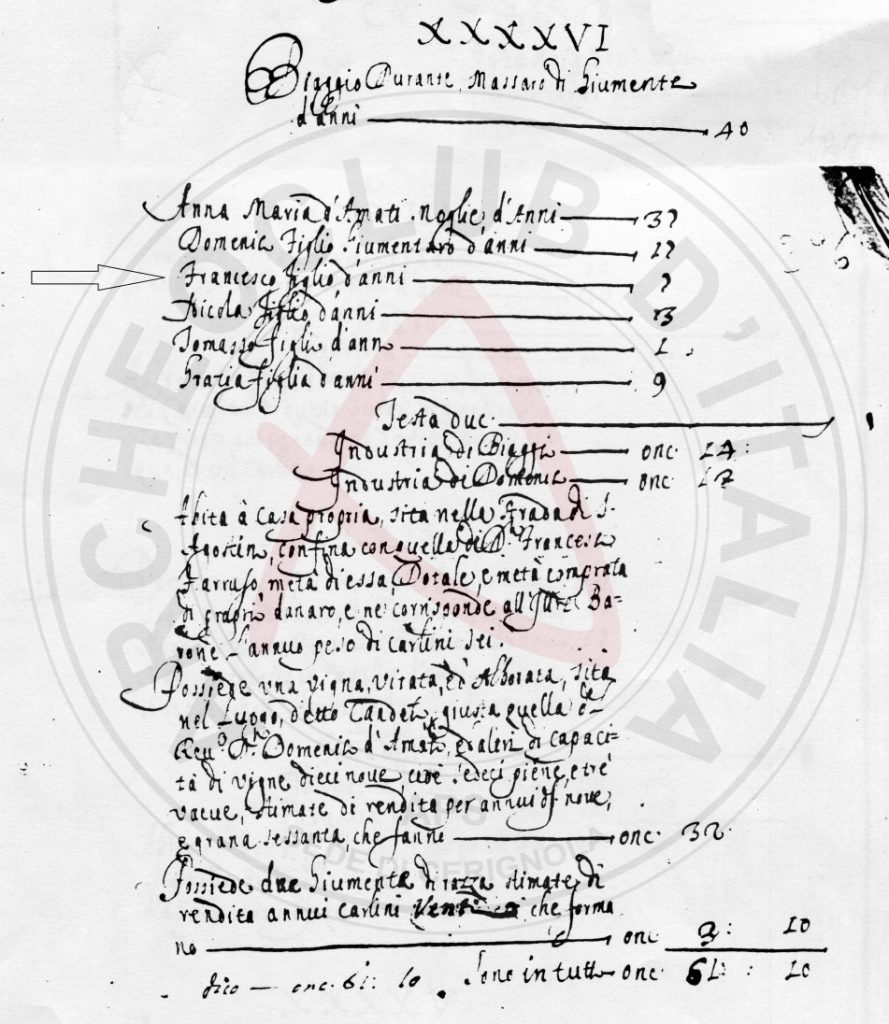 XXXXVI
Biaggio Durante, Massaro di Giumente
d'anni 40
Anna Maria d'Amati Moglie, d'Anni 37
Domenico Figlio Giumentaro d'anni 17
Francesco figlio d'anni 7
Nicola figlio d'anni 3
Tomasso figlio d'ann 1
Grazia figlia d'anni 9
Testa duc.
Industria di Biaggio onc. 14:
Industria di Domenico onc. 12
Abita à Casa propria, sita nella strada di S.
Agostino, confina con quella di D. Francesco
Farruso, metà di essa Dotale, e metà comprata
di proprio danaro, e ne corrisponde all' Ba=
rone l'annuo peso di carlini sei.
Possiede una vigna, vitata, ed Alborata, sita
nel Luogo, detto giusta quella del
Reu.do D. Domenico d'Amati, ed altri di capaci=
tà di vigne dieci nove, cioè sedeci piene, e trè
vacue, stimate di rendita per annui d. nove,
e grana sessanta, che fanno onc. 32.
Possiede due Giumente di razza stimate di
rendita annui carlini che forma
no onc. 3: 10
dico — onc. 61: 10 Sono in tutto onc. 61: 10
ARCHEOCLUB D'ITALIA
APS
SEDE DI CERIGNOLA